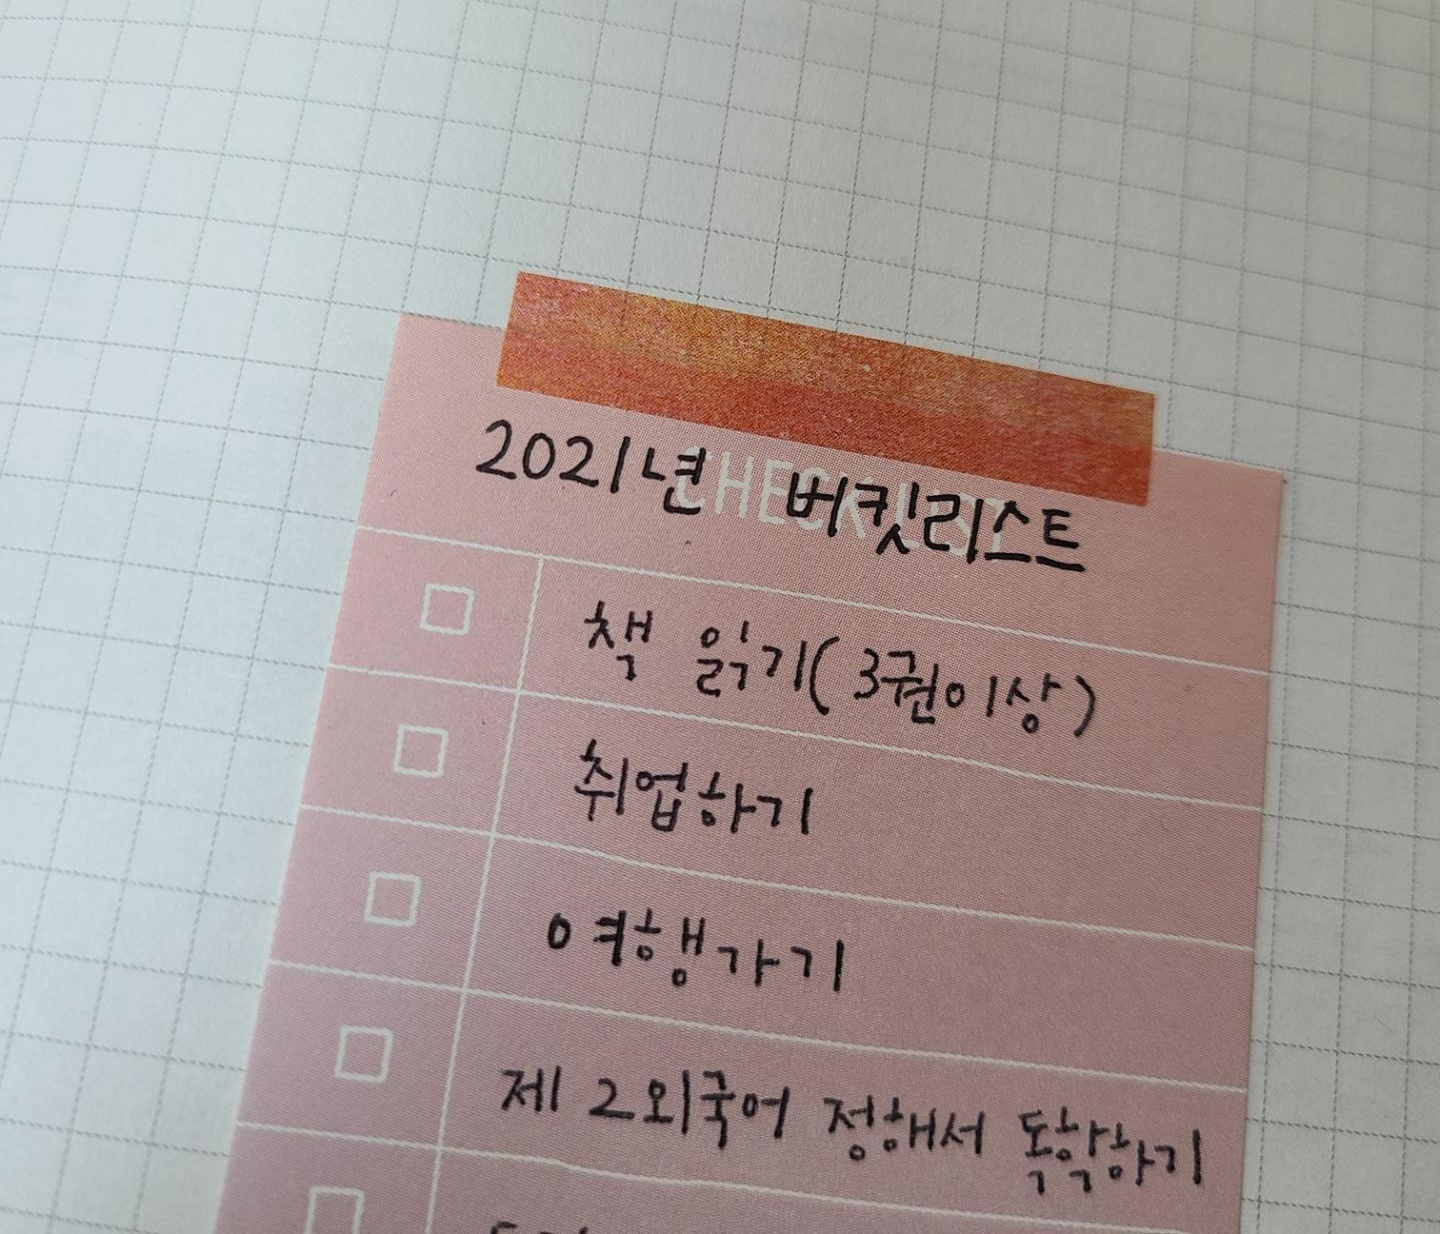 2021년 버킷리스트
CHECK LIST
책 읽기(3권이상)
취업하기
여행가기
제 2외국어 정해서 독학하기